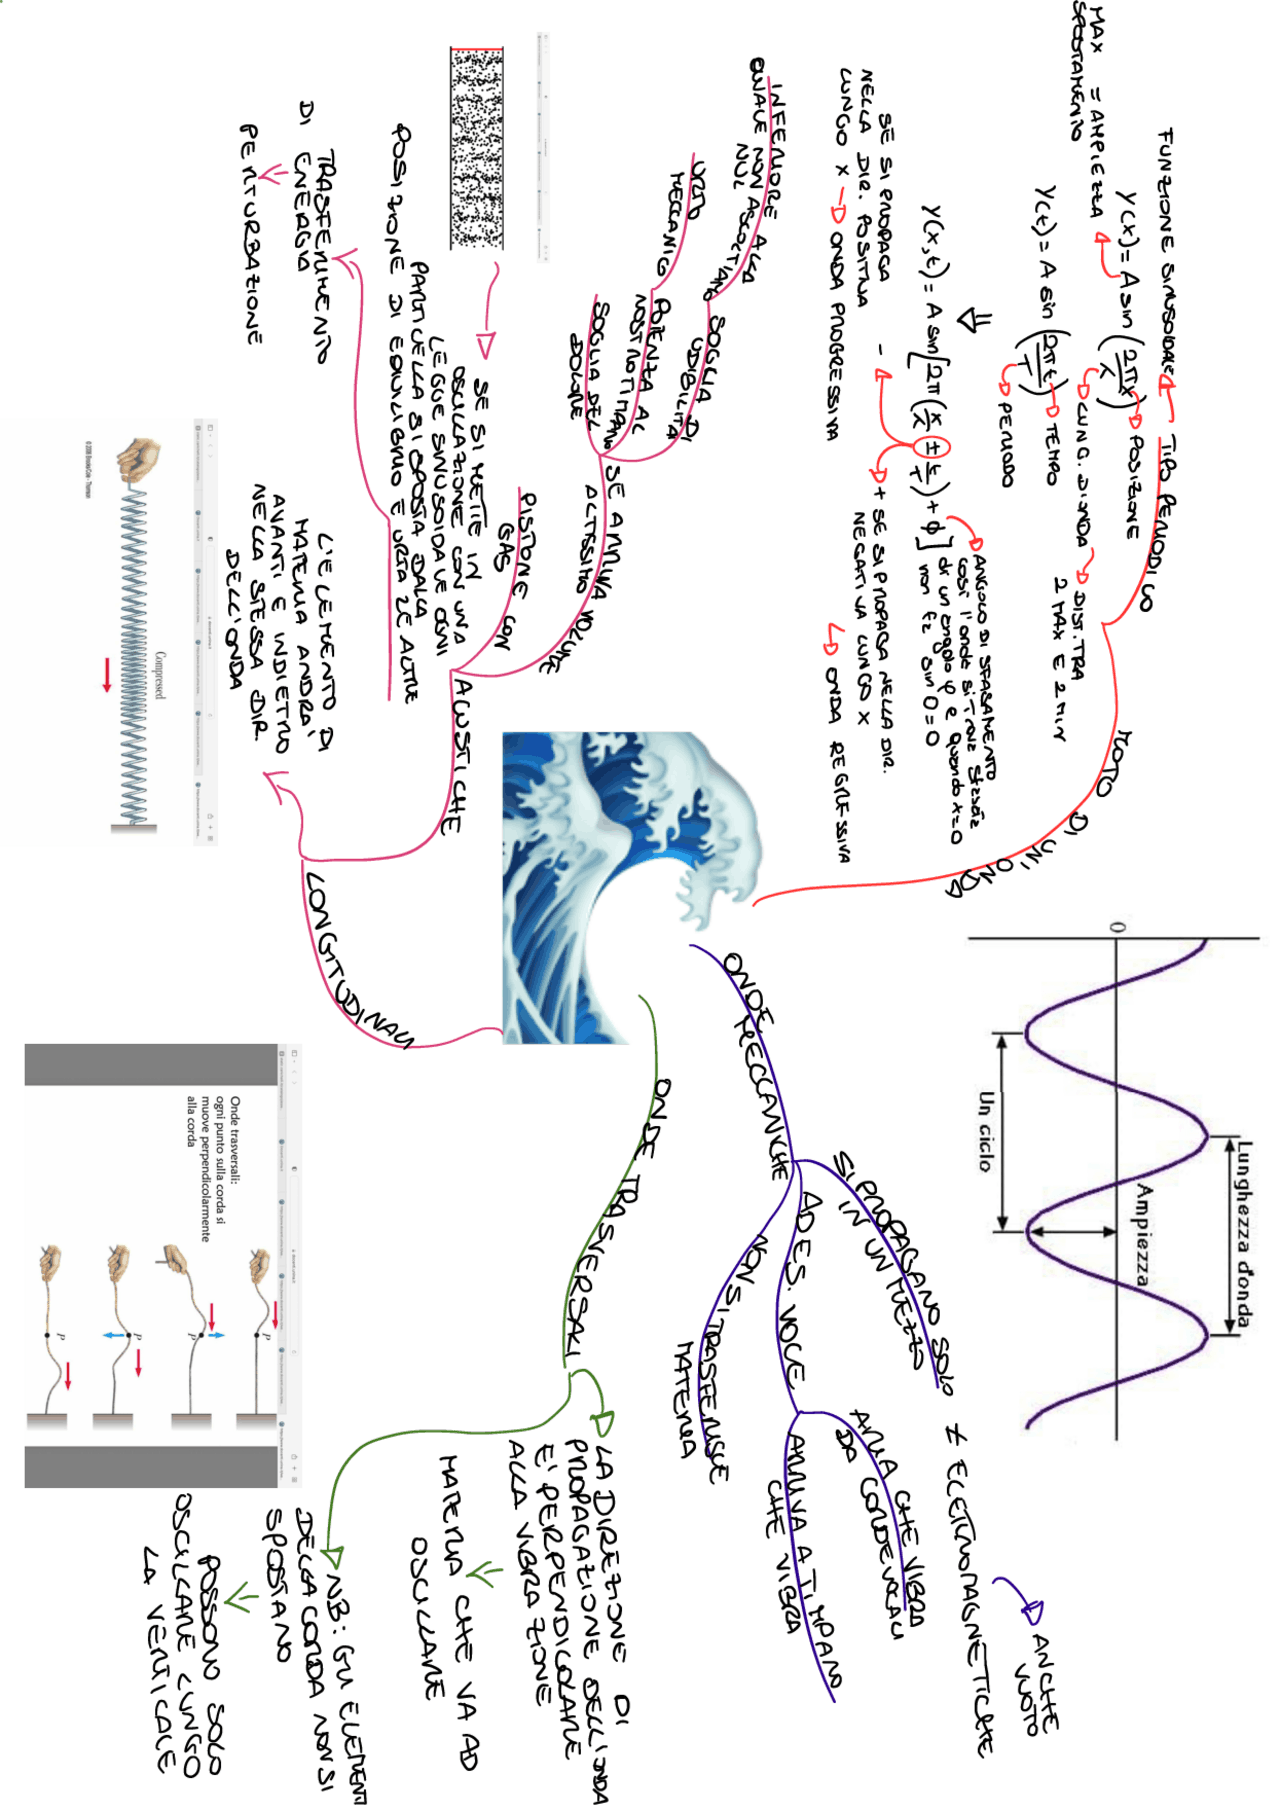 FUNZIONE SINUSOIDALE
TIPO PERIODICO
MOTO DI UN'ONDA
Y(x) = A sin (2πx/λ)
POSIZIONE
MAX SPOSTAMENTO = AMPIEZZA
LUNG. D'ONDA
DIST. TRA
2 MAX E 2 MIN
Y(t) = A sin (2πt/T)
TEMPO
PERIODO
Y(x,t) = A sin [2π (x/λ ± t/T) + ϕ]
ANGOLO DI SFASAMENTO
così l'onda si trova sfasata
di un angolo φ e quando x=0
non fa sin 0 = 0
-
SE SI PROPAGA
NELLA DIR. POSITIVA
LUNGO X
ONDA PROGRESSIVA
+ SE SI PROPAGA NELLA DIR.
NEGATIVA LUNGO X
ONDA REGRESSIVA
0
Lunghezza d'onda
Ampiezza
Un ciclo
ONDE MECCANICHE
SI PROPAGANO SOLO
IN UN MEZZO
≠ ELETTROMAGNETICHE
ANCHE
VUOTO
AD ES. VOCE
ARIA CHE VIBRA
DA CORDE VOCALI
ARRIVA A TIMPANO
CHE VIBRA
NON SI TRASFERISCE
MATERIA
ONDE TRASVERSALI
LA DIREZIONE DI
PROPAGAZIONE DELL'ONDA
E' PERPENDICOLARE
ALLA VIBRAZIONE
MATERIA CHE VA AD
OSCILLARE
NB: GLI ELEMENTI
DELLA CORDA NON SI
SPOSTANO
POSSONO SOLO
OSCILLARE LUNGO
LA VERTICALE
Onde trasversali:
ogni punto sulla corda si
muove perpendicolarmente
alla corda
P
P
P
P
LONGITUDINALI
L'ELEMENTO DI
MATERIA ANDRA'
AVANTI E INDIETRO
NELLA STESSA DIR.
DELL'ONDA
Compressed
ACUSTICHE
SE ARRIVA
ALTISSIMO VOLUME
SOGLIA DI
UDIBILITÀ
INFERIORE ALLA
QUALE NON ASCOLTIAMO
NULLA
POTENZA AL
NOSTRO TIMPANO
URTO
MECCANICO
SOGLIA DEL
DOLORE
PISTONE CON
GAS
SE SI METTE IN
OSCILLAZIONE CON UNA
LEGGE SINUSOIDALE OGNI
PARTICELLA SI SPOSTA DALLA
POSIZIONE DI EQUILIBRIO E URTA LE ALTRE
TRASFERIMENTO
DI ENERGIA
PERTURBAZIONE